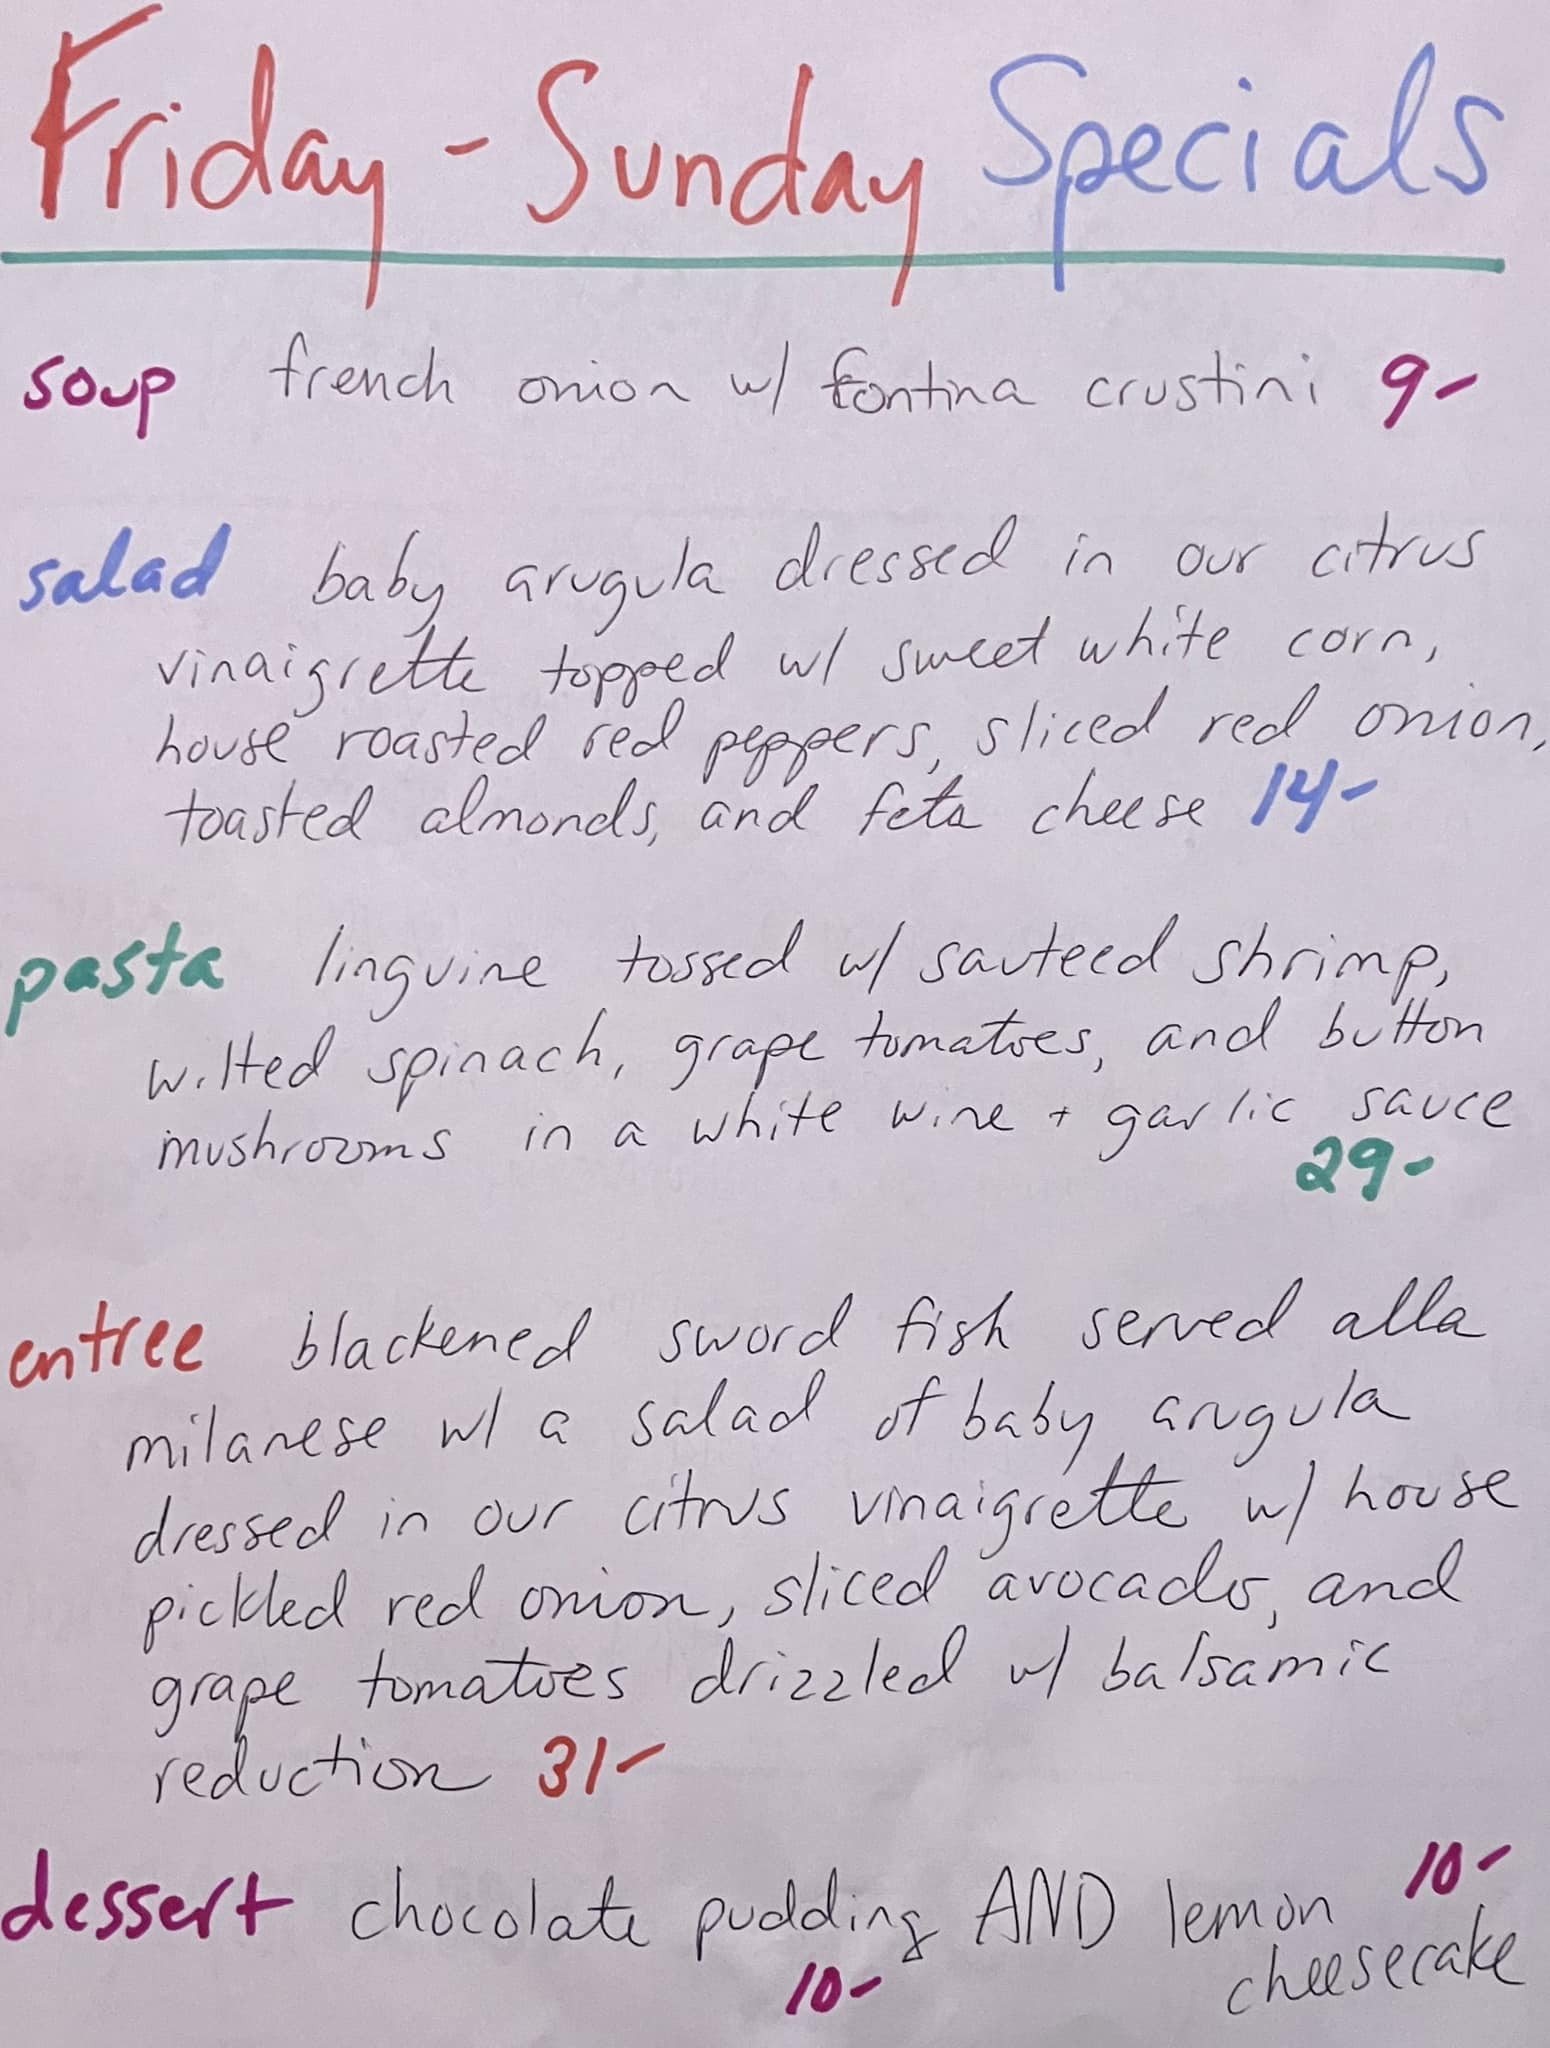 Friday - Sunday Specials
soup french onion w/ fontina crustini 9-
salad baby arugula dressed in our citrus
vinaigrette topped w/ sweet white corn,
house roasted red peppers, sliced red onion,
toasted almonds, and feta cheese 14-
pasta linguine tossed w/ sauteed shrimp,
wilted spinach, grape tomatoes, and button
mushrooms in a white wine + garlic sauce
29-
entree blackened sword fish served alla
milanese w/ a salad of baby arugula
dressed in our citrus vinaigrette w/ house
pickled red onion, sliced avocado, and
grape tomatoes drizzled w/ balsamic
reduction 31-
dessert chocolate pudding AND lemon 10-
10- cheesecake